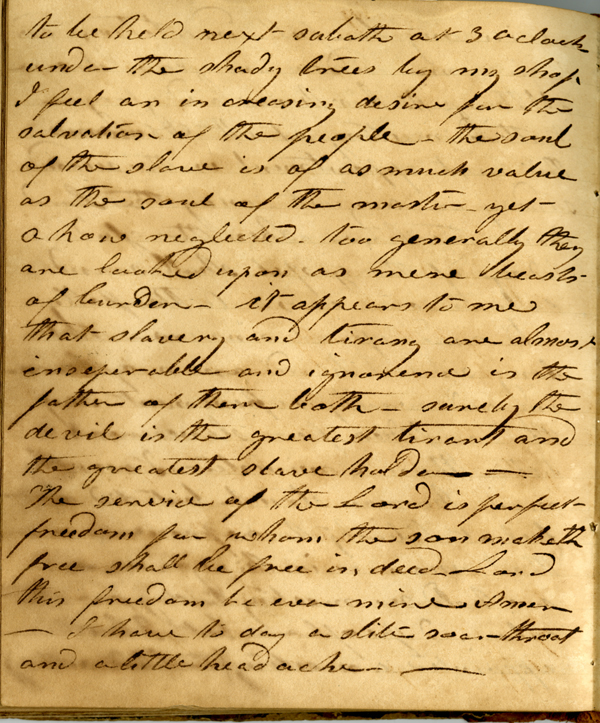 to be held next sabath at 3 oclock
unde the shady trees by my shop
I feel an increasing desire for the
salvation of the people - the soul
of the slave is of as much value
as the soul of the master - yet
o how neglected - too generally they
are looked upon as mere beasts
of burden - it appears to me
that slavery and tirany are almost
inseperable and ignorence is the
father of them both - surely the
devil is the greatest tirant and
the greatest slave holder -
The service of the Lord is perfect
freedom for whom the son maketh
free shall be free indeed - Lord
this freedom be ever mine Amen
- I have to day a slite soar throat
and a little headache -